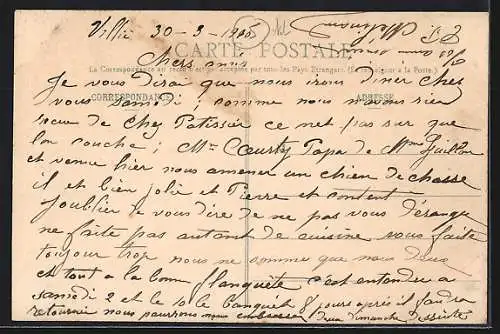 Villié 30-3-1905
CARTE POSTALE
Chers amis
La Correspondance au recto n'est pas acceptée par tous les Pays Étrangers. (Se renseigner à la Poste.)
CORRESPONDANCE
ADRESSE
Je vous dirai que nous irons diner chez
vous samedi ; comme nous navons rien
recu de chez Patissier ce net pas sur que
lon couche ; Mr Papa de Mme Guillon
et venue hier nous amener un chien de chasse
il et bien jolie et Pierre et content
Joublier de vous dire de ne pas vous déranger
ne faite pas autant de cuisine vous faite
toujour trop nous ne somme que nous deux
et tout a la bonne flanquète c'est entendu a
samedi 2 et le 10 le banquet 8 jours après il faudra
retourner nous pourrons nous embrasser deux dimanche de suite